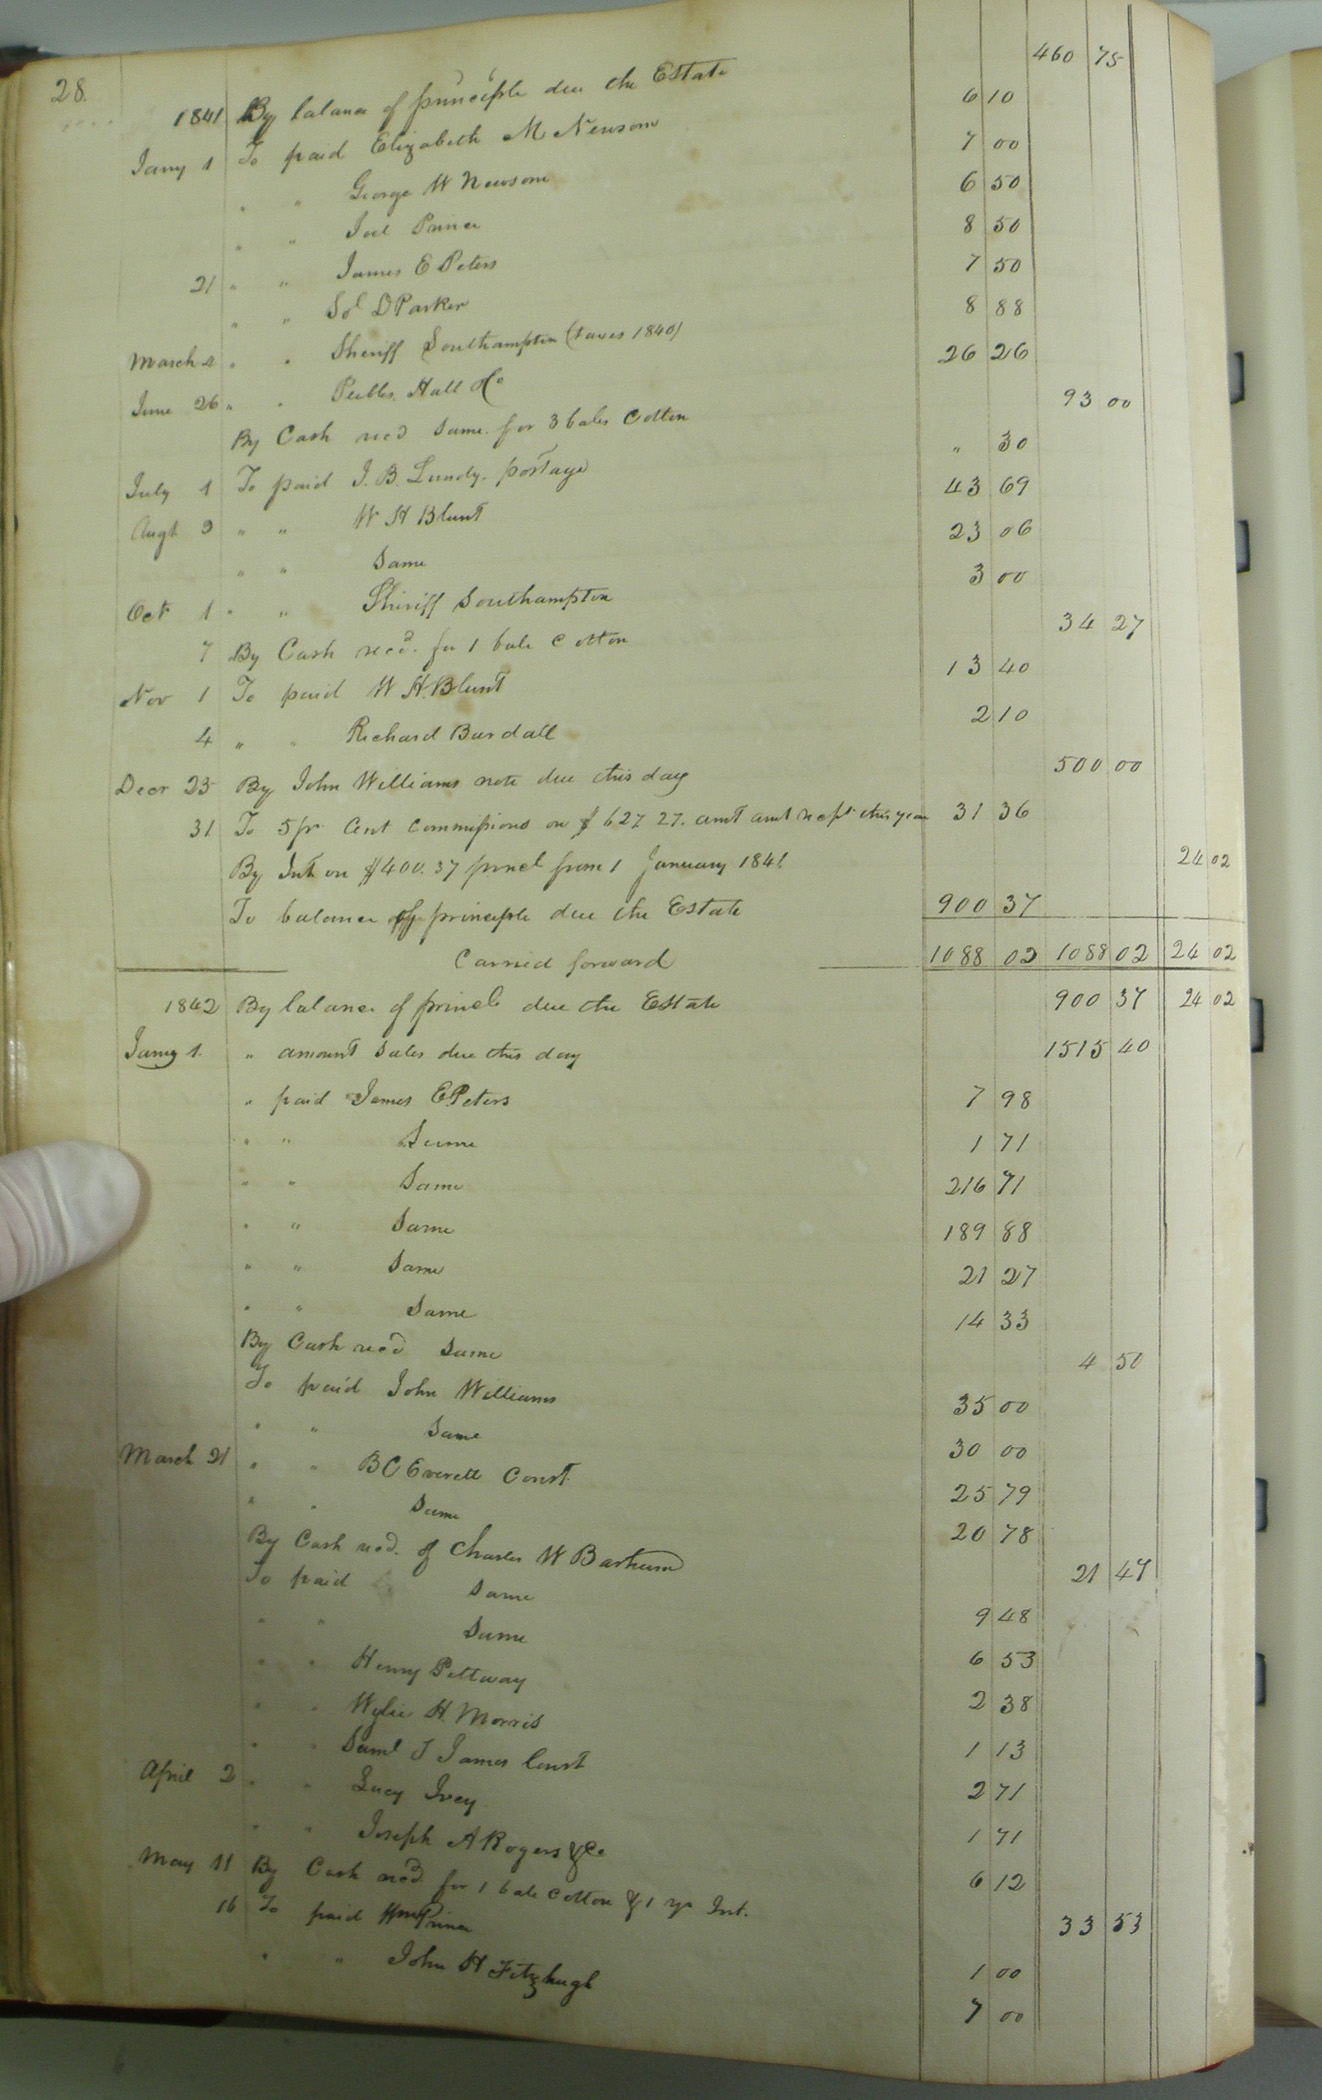 28.
1841 By balance of principle due the Estate 460 75
Jany 1 To paid Elizabeth M Newsom 6 10
" " George W Newsom 7 00
" " Joel Prince 6 50
21 " " James E Peters 8 50
" " Sol D Parker 7 50
March " " Sheriff Southampton (taxes 1840) 8 88
June 26 " " Peebles, Hall & Co 26 26
By Cash recd same for 3 bales Cotton 93 00
July 1 To paid J. B. Lundy. postage " 30
Augt 9 " " W H Blunt 43 69
" " Same 23 06
Oct 1 " " Sheriff Southampton 3 00
7 By Cash recd. for 1 bale Cotton 34 27
Nov 1 To paid W H. Blunt 13 40
4 " " Richard Burdall 2 10
Decr 25 By John Williams note due this day 500 00
31 To 5 pr Cent Commissions on $ 627 27. amt recpt this year 31 36
By Int on $400. 37 princl from 1 January 1841 24 02
To balance of principle due the Estate 900 37
Carried forward 1088 02 1088 02 24 02
1842 By balance of princle due the Estate 900 37 24 02
Jany 1. " amount Sales due this day 1515 40
" paid James E. Peters 7 98
" " Same 1 71
" " Same 216 71
" " Same 189 88
" " Same 21 27
" " Same 14 33
By Cash recd Same 4 50
To paid John Williams 35 00
" " Same 30 00
March 21 " " B C Everett Const. 25 79
" " Same 20 78
By Cash recd. of Charles W Barham 21 47
To paid Same 9 48
" " Same 6 53
" " Henry Pettway 2 38
" " Wylie H. Morris 1 13
" " Saml J James Const 2 71
April 2 " " Lucy Ivey 1 71
" " Joseph A Rogers & Co 6 12
May 11 By Cash recd for 1 bale Cotton & 1 yr Int. 33 53
16 To paid Prince 1 00
" " John H Fitzhugh 7 00